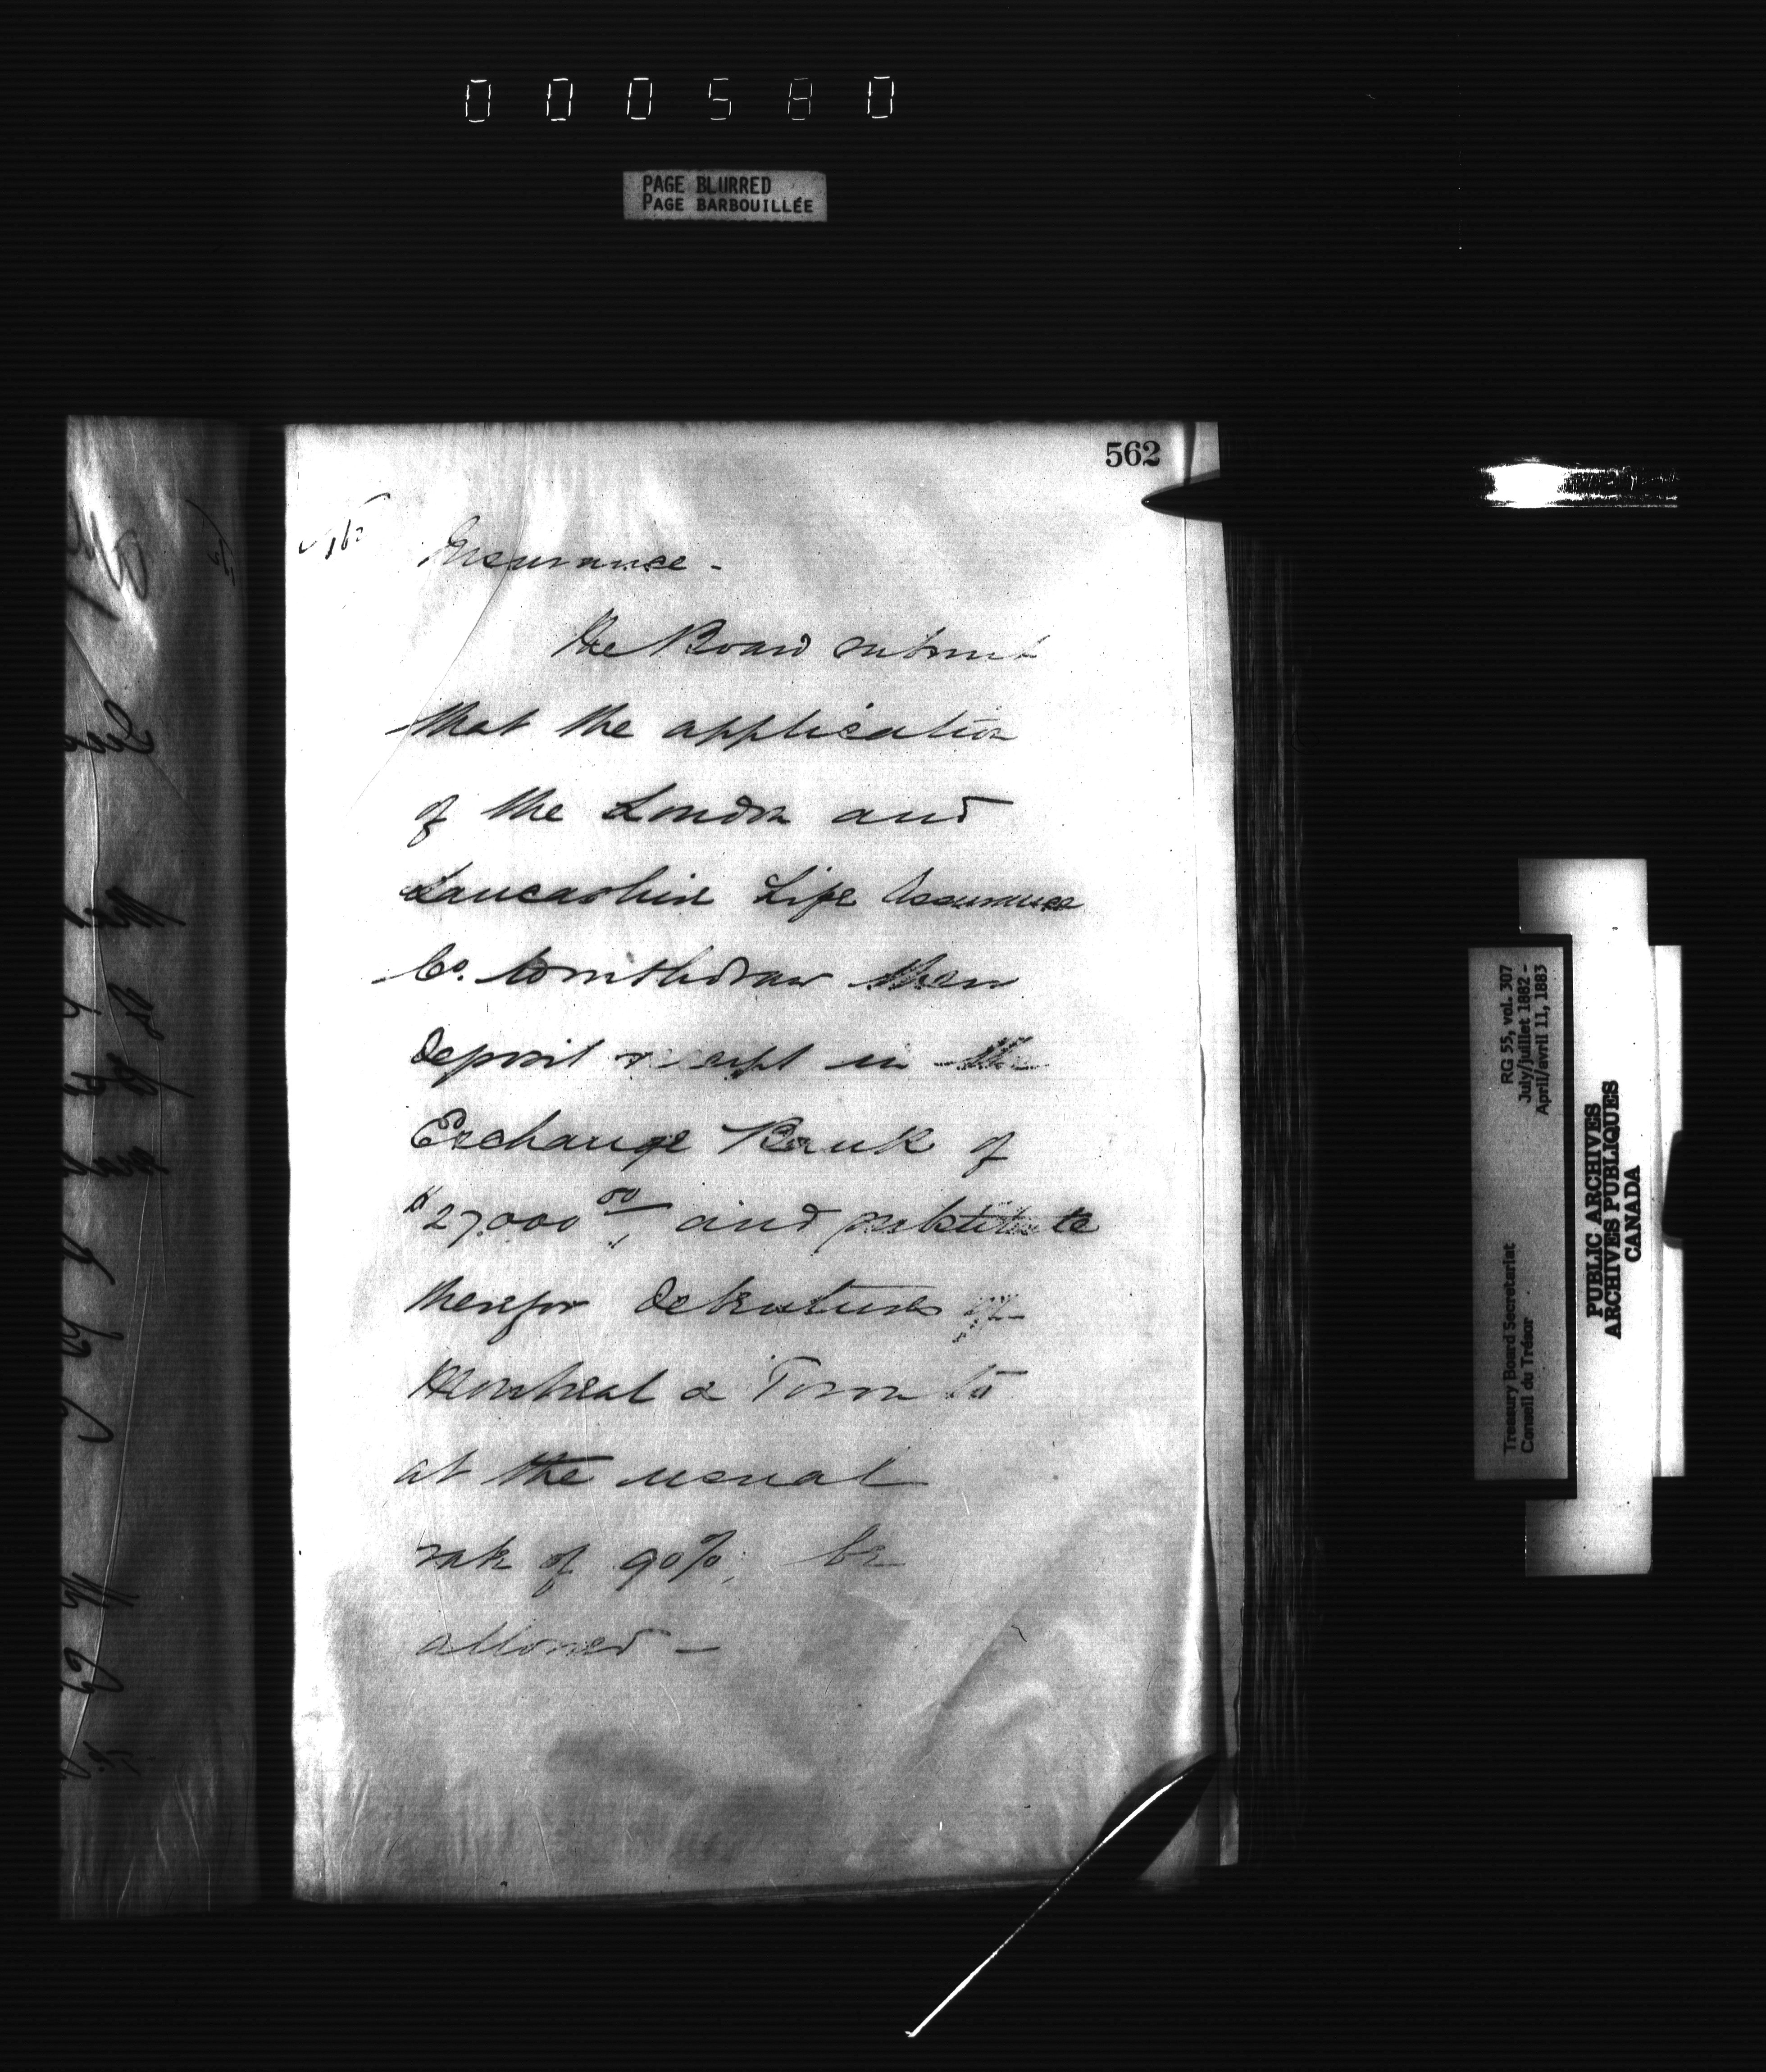 000580
PAGE BLURRED
PAGE BARBOUILLÉE
562
Insurance -
The Board submit
that the application
of the London and
Lancashire Life Assurance
Co. to withdraw their
deposit receipt in the
Exchange Bank of
$27.000 00/, and substitute
therefor debentures of
Montreal & Toronto
at the usual
rate of 90%, be
allowed -
RG 55, vol. 307
July/juillet 1882 -
April/avril 11, 1883
Treasury Board Secretariat
Conseil du Trésor
PUBLIC ARCHIVES
ARCHIVES PUBLIQUES
CANADA